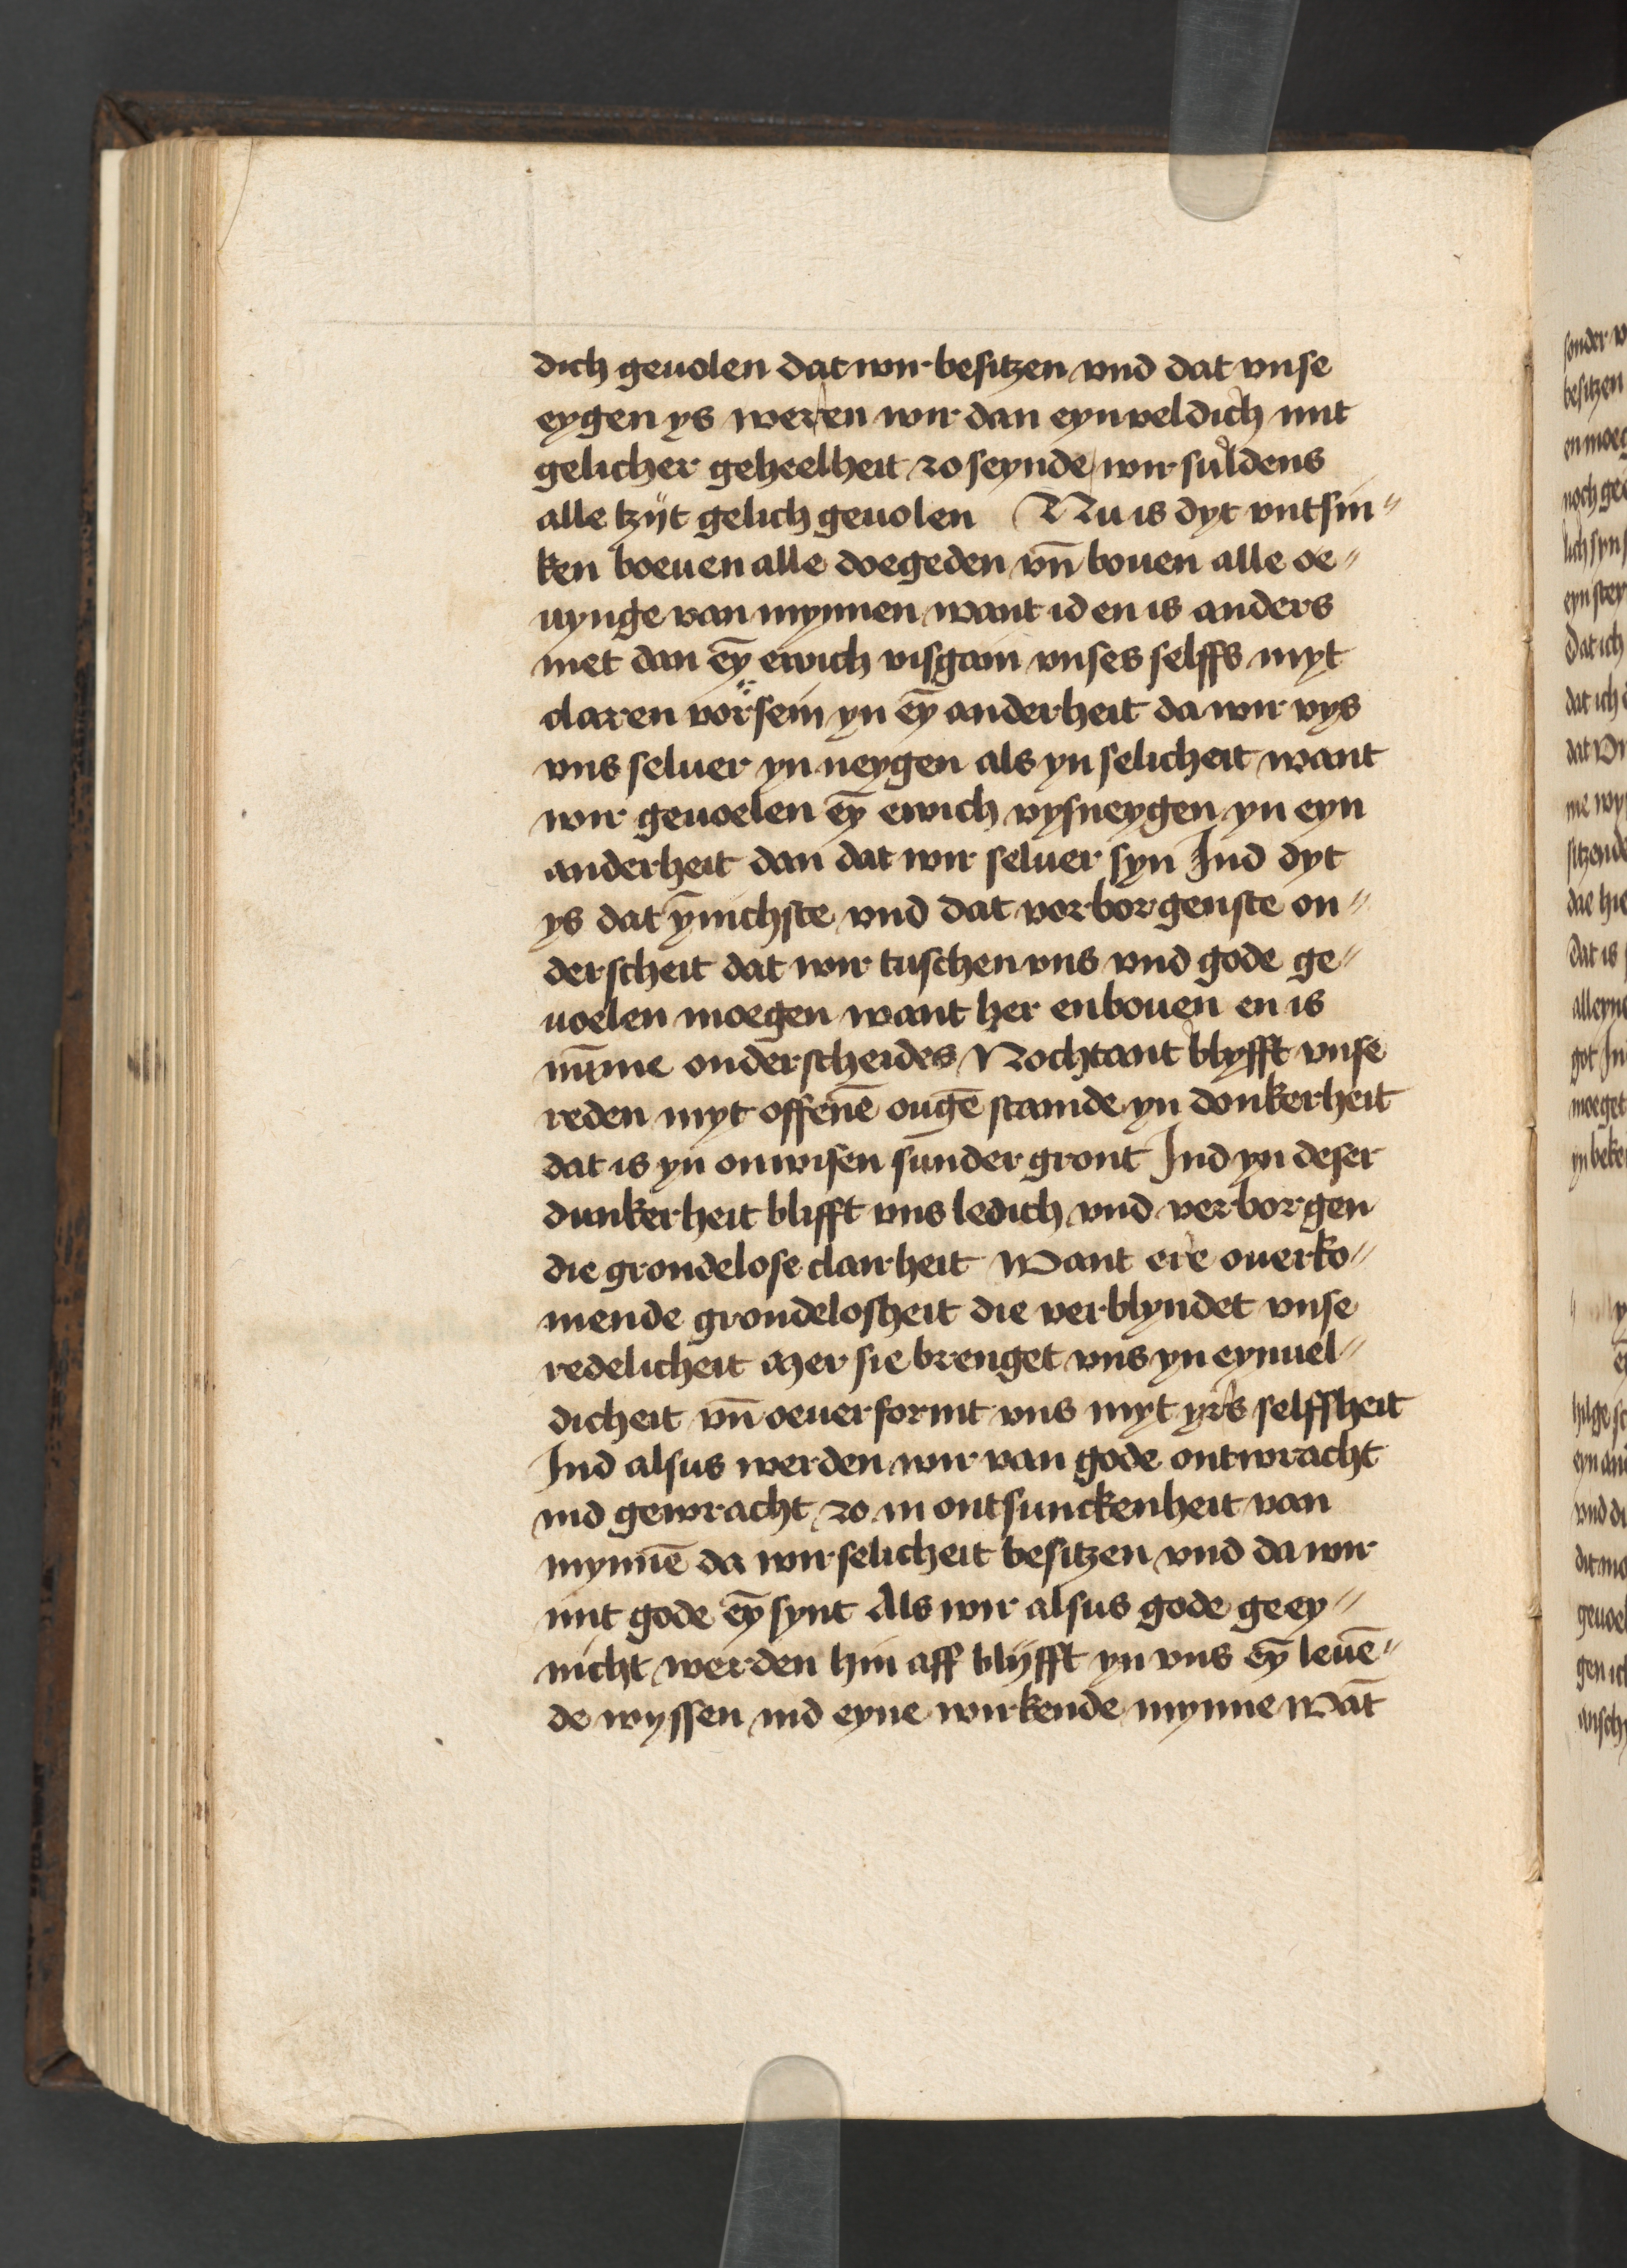 dich geuolen dat wir besitzen vnd dat vnse
eygen ys weren wir dan eynueldich mit
gelicher geheelheit zo seynde wir suldens
alle tzijt gelich geuolen Nu is dyt vntsin„
ken boeuen alle doegeden vn̄ bouen alle oe„
uynge van mynnen want id en is anders
niet dan eȳ ewich visgain vnses selffs myt
claren vorsein yn eȳ anderheit da wir vys
vns seluer yn neygen als yn selicheit want
wir geuoelen eȳ ewich vysneygen yn eyn
anderheit dan dat wir seluer syn Ind dyt
ys dat ȳnichste vnd dat vorborgenste on„
derscheit dat wir tuschen vns vnd gode ge„
uoelen moegen want her enbouen en is
nūme onderscheides Nochtant blyfft vnse
reden myt offenē ougē stainde yn donkerheit
dat is yn onwisen sunder gront Ind yn deser
dunkerheit blifft vns ledich vnd verborgen
die grondelose clairheit Want ere ouerko„
mende grondelosheit die verblyndet vnse
redelicheit Mer sie brenget vns yn eynuel„
dicheit vn̄ oeuerformt vns myt yrs selffsheit
Ind alsus werden wir van gode ontwracht
ind gewracht zo in ontsunckenheit van
mynnē da wir selicheit besitzen vnd da wir
mit gode eȳ synt Als wir alsus gode geey„
nicht werden hin aff blijfft yn vns eȳ leuē„
de wyssen ind eyne wirkende mynne Wāt
sonder
besitzen
en moeg
dat ich
dat ich
sitzende
dat is
alleyne
got In
moeget
yn beke
eyn and